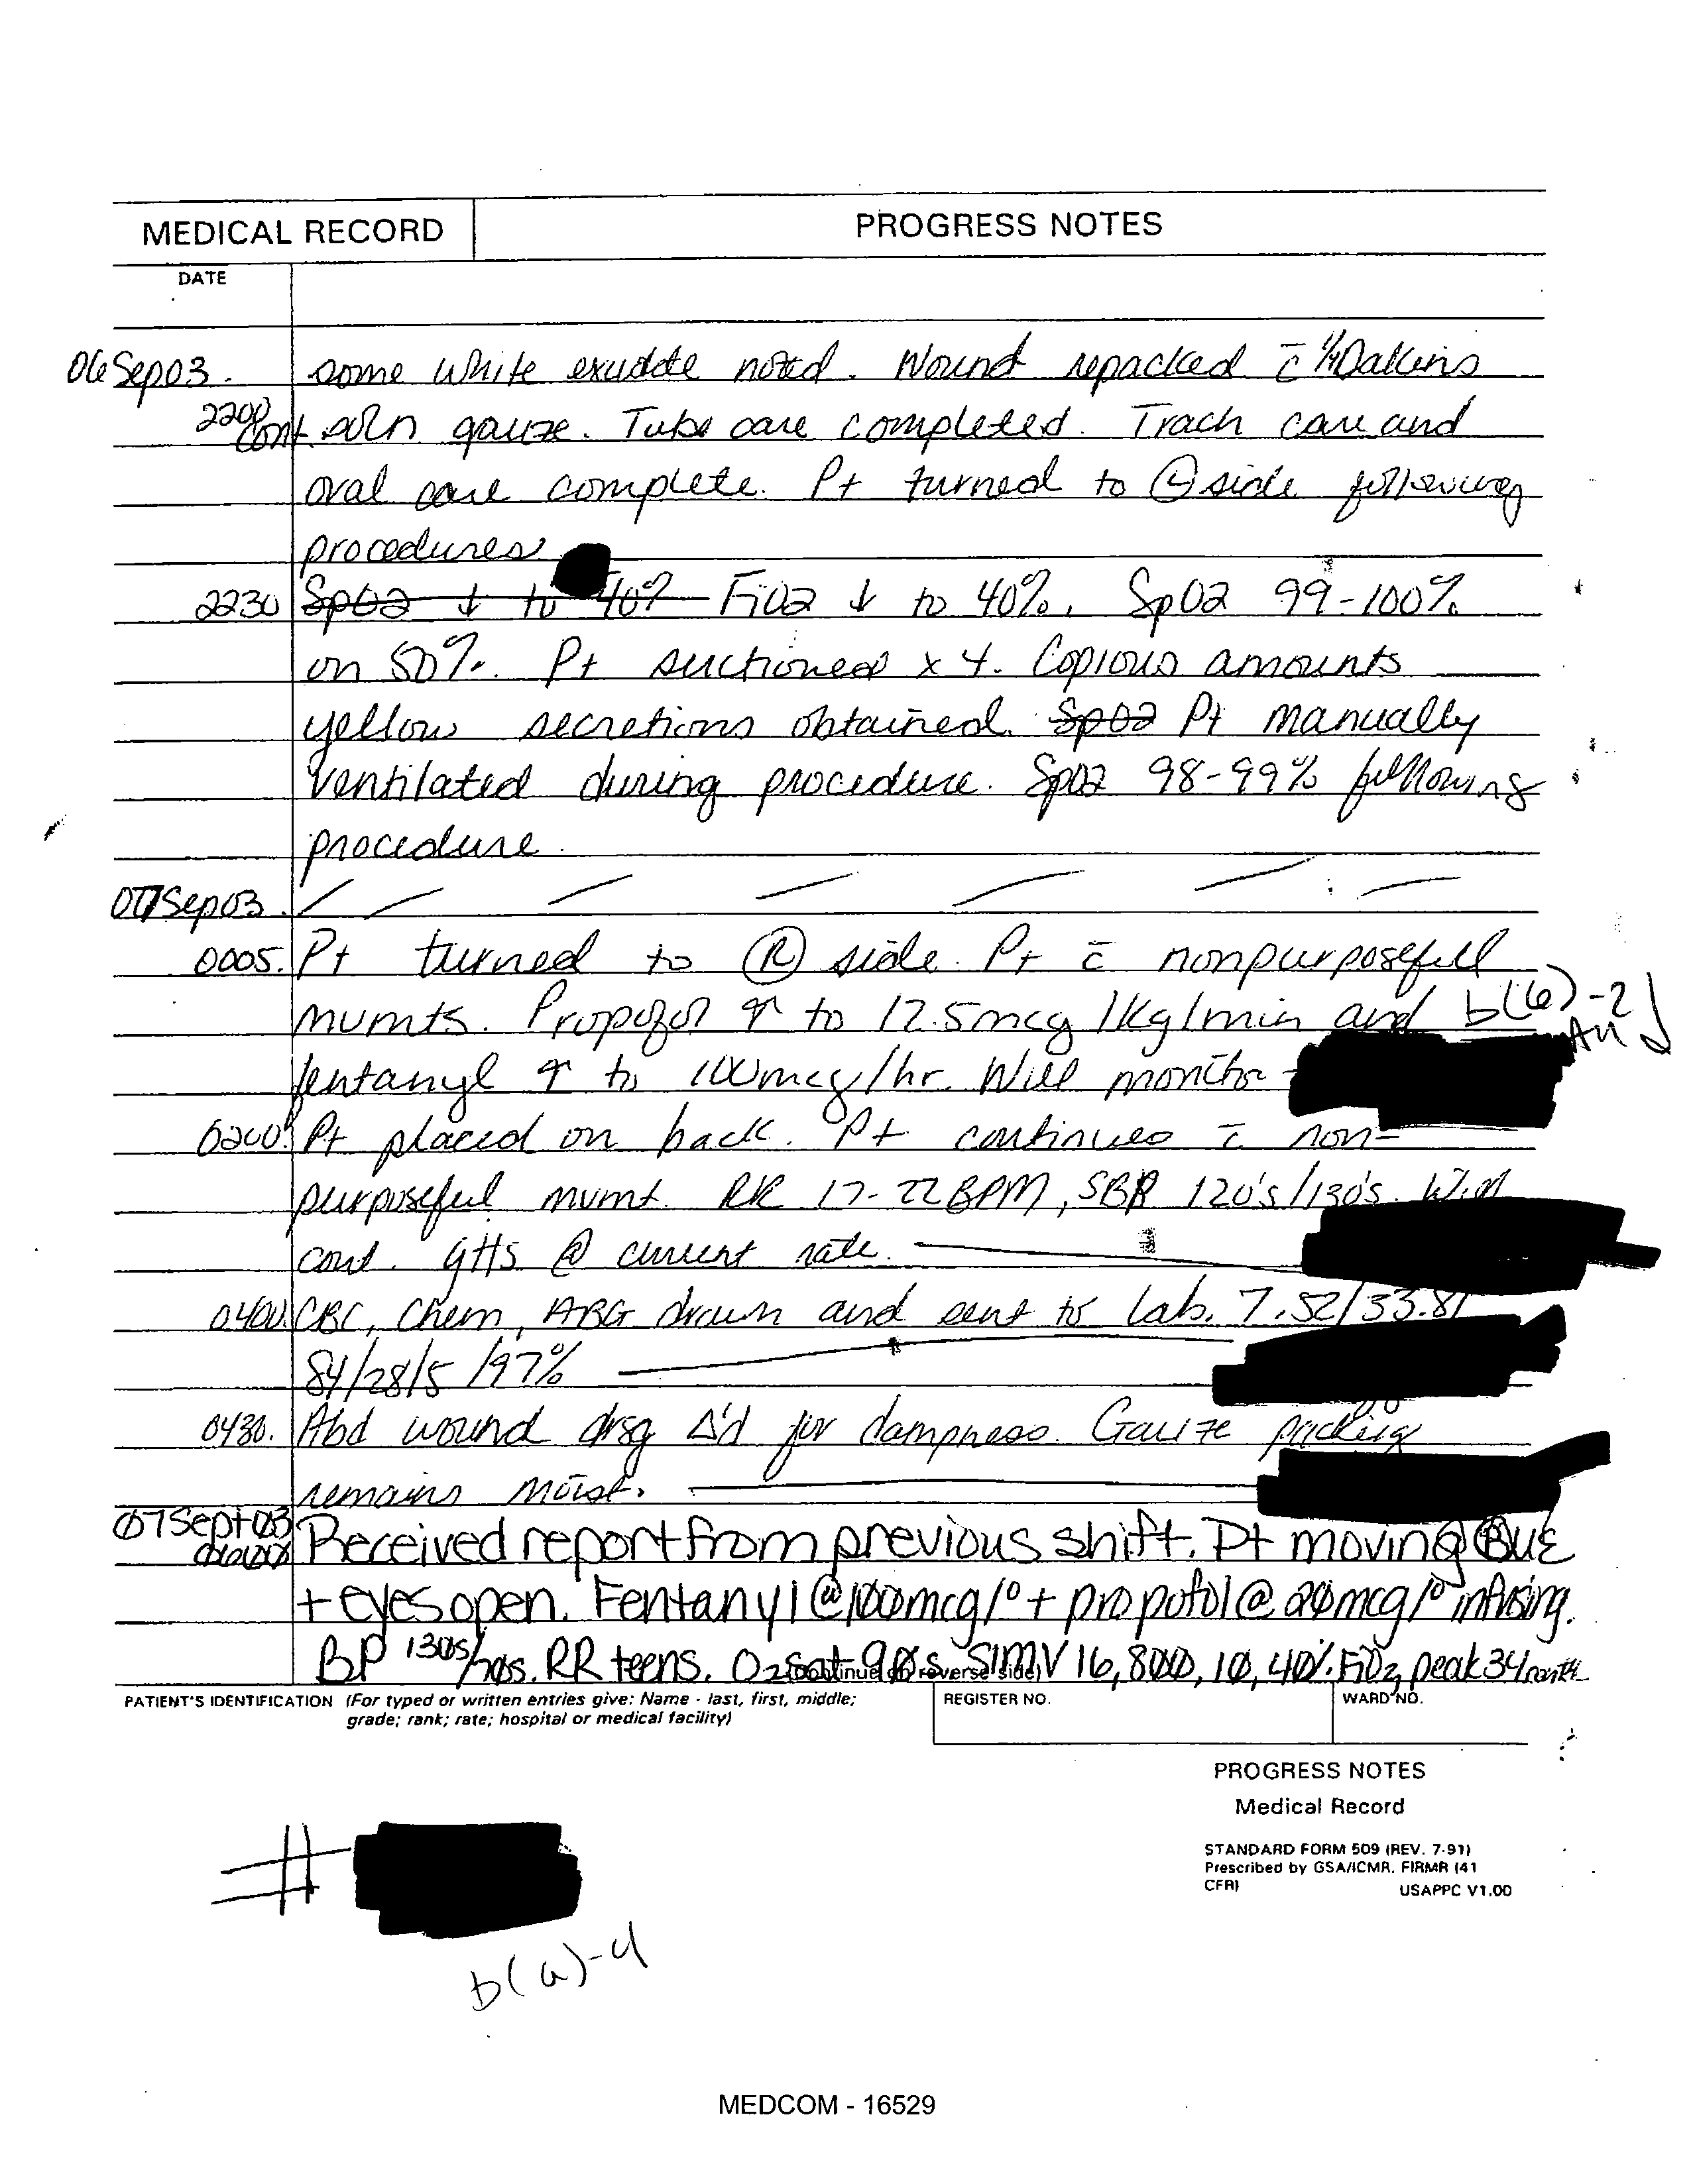 MEDICAL RECORD
PROGRESS NOTES
DATE
06Sep03. some white exudate noted. Wound repacked c̄ ¼ Dakins
2200 cont. soln gauze. Tube care completed. Trach care and
oral care complete. Pt turned to Ⓛ side following
procedures
2230 SpO2 ↓ to 40% FiO2 ↓ to 40%. SpO2 99-100%
on 50%. Pt suctioned x 4. Copious amounts
yellow secretions obtained. SpO2 Pt manually
ventilated during procedure. SpO2 98-99% following
procedure.
07Sep03.
0005. Pt turned to Ⓡ side. Pt c̄ nonpurposefull
mvmts. Propofol ↑ to 17.5mcg/kg/min and b(6)-2
fentanyl ↑ to 100mcg/hr. Will monitor All
0200. Pt placed on back. Pt continues c̄ non-
purposeful mvmt. RR 17-22 BPM, SBP 120's/130's. Will
cont. gtts @ current rate.
0400. CBC, Chem, ABG drawn and sent to lab. 7.52/33.8/
84/28/5/97%
0430. Abd wound drsg Δ'd for dampness. Gauze packing
remains moist.
07Sept03
0600 Received report from previous shift. Pt moving BUE
+ eyes open. Fentanyl @ 100mcg/° + propofol @ 20mcg/° infusing.
BP 130s/ RR teens. O2 sat 90s. SIMV 16, 800, 10, 40% FiO2, peak 34
(Continue on reverse side)
PATIENT'S IDENTIFICATION (For typed or written entries give: Name - last, first, middle;
grade; rank; rate; hospital or medical facility)
REGISTER NO.
WARD NO.
PROGRESS NOTES
Medical Record
STANDARD FORM 509 (REV. 7-91)
Prescribed by GSA/ICMR, FIRMR (41
CFR)
USAPPC V1.00
#
b(6)-4
MEDCOM - 16529